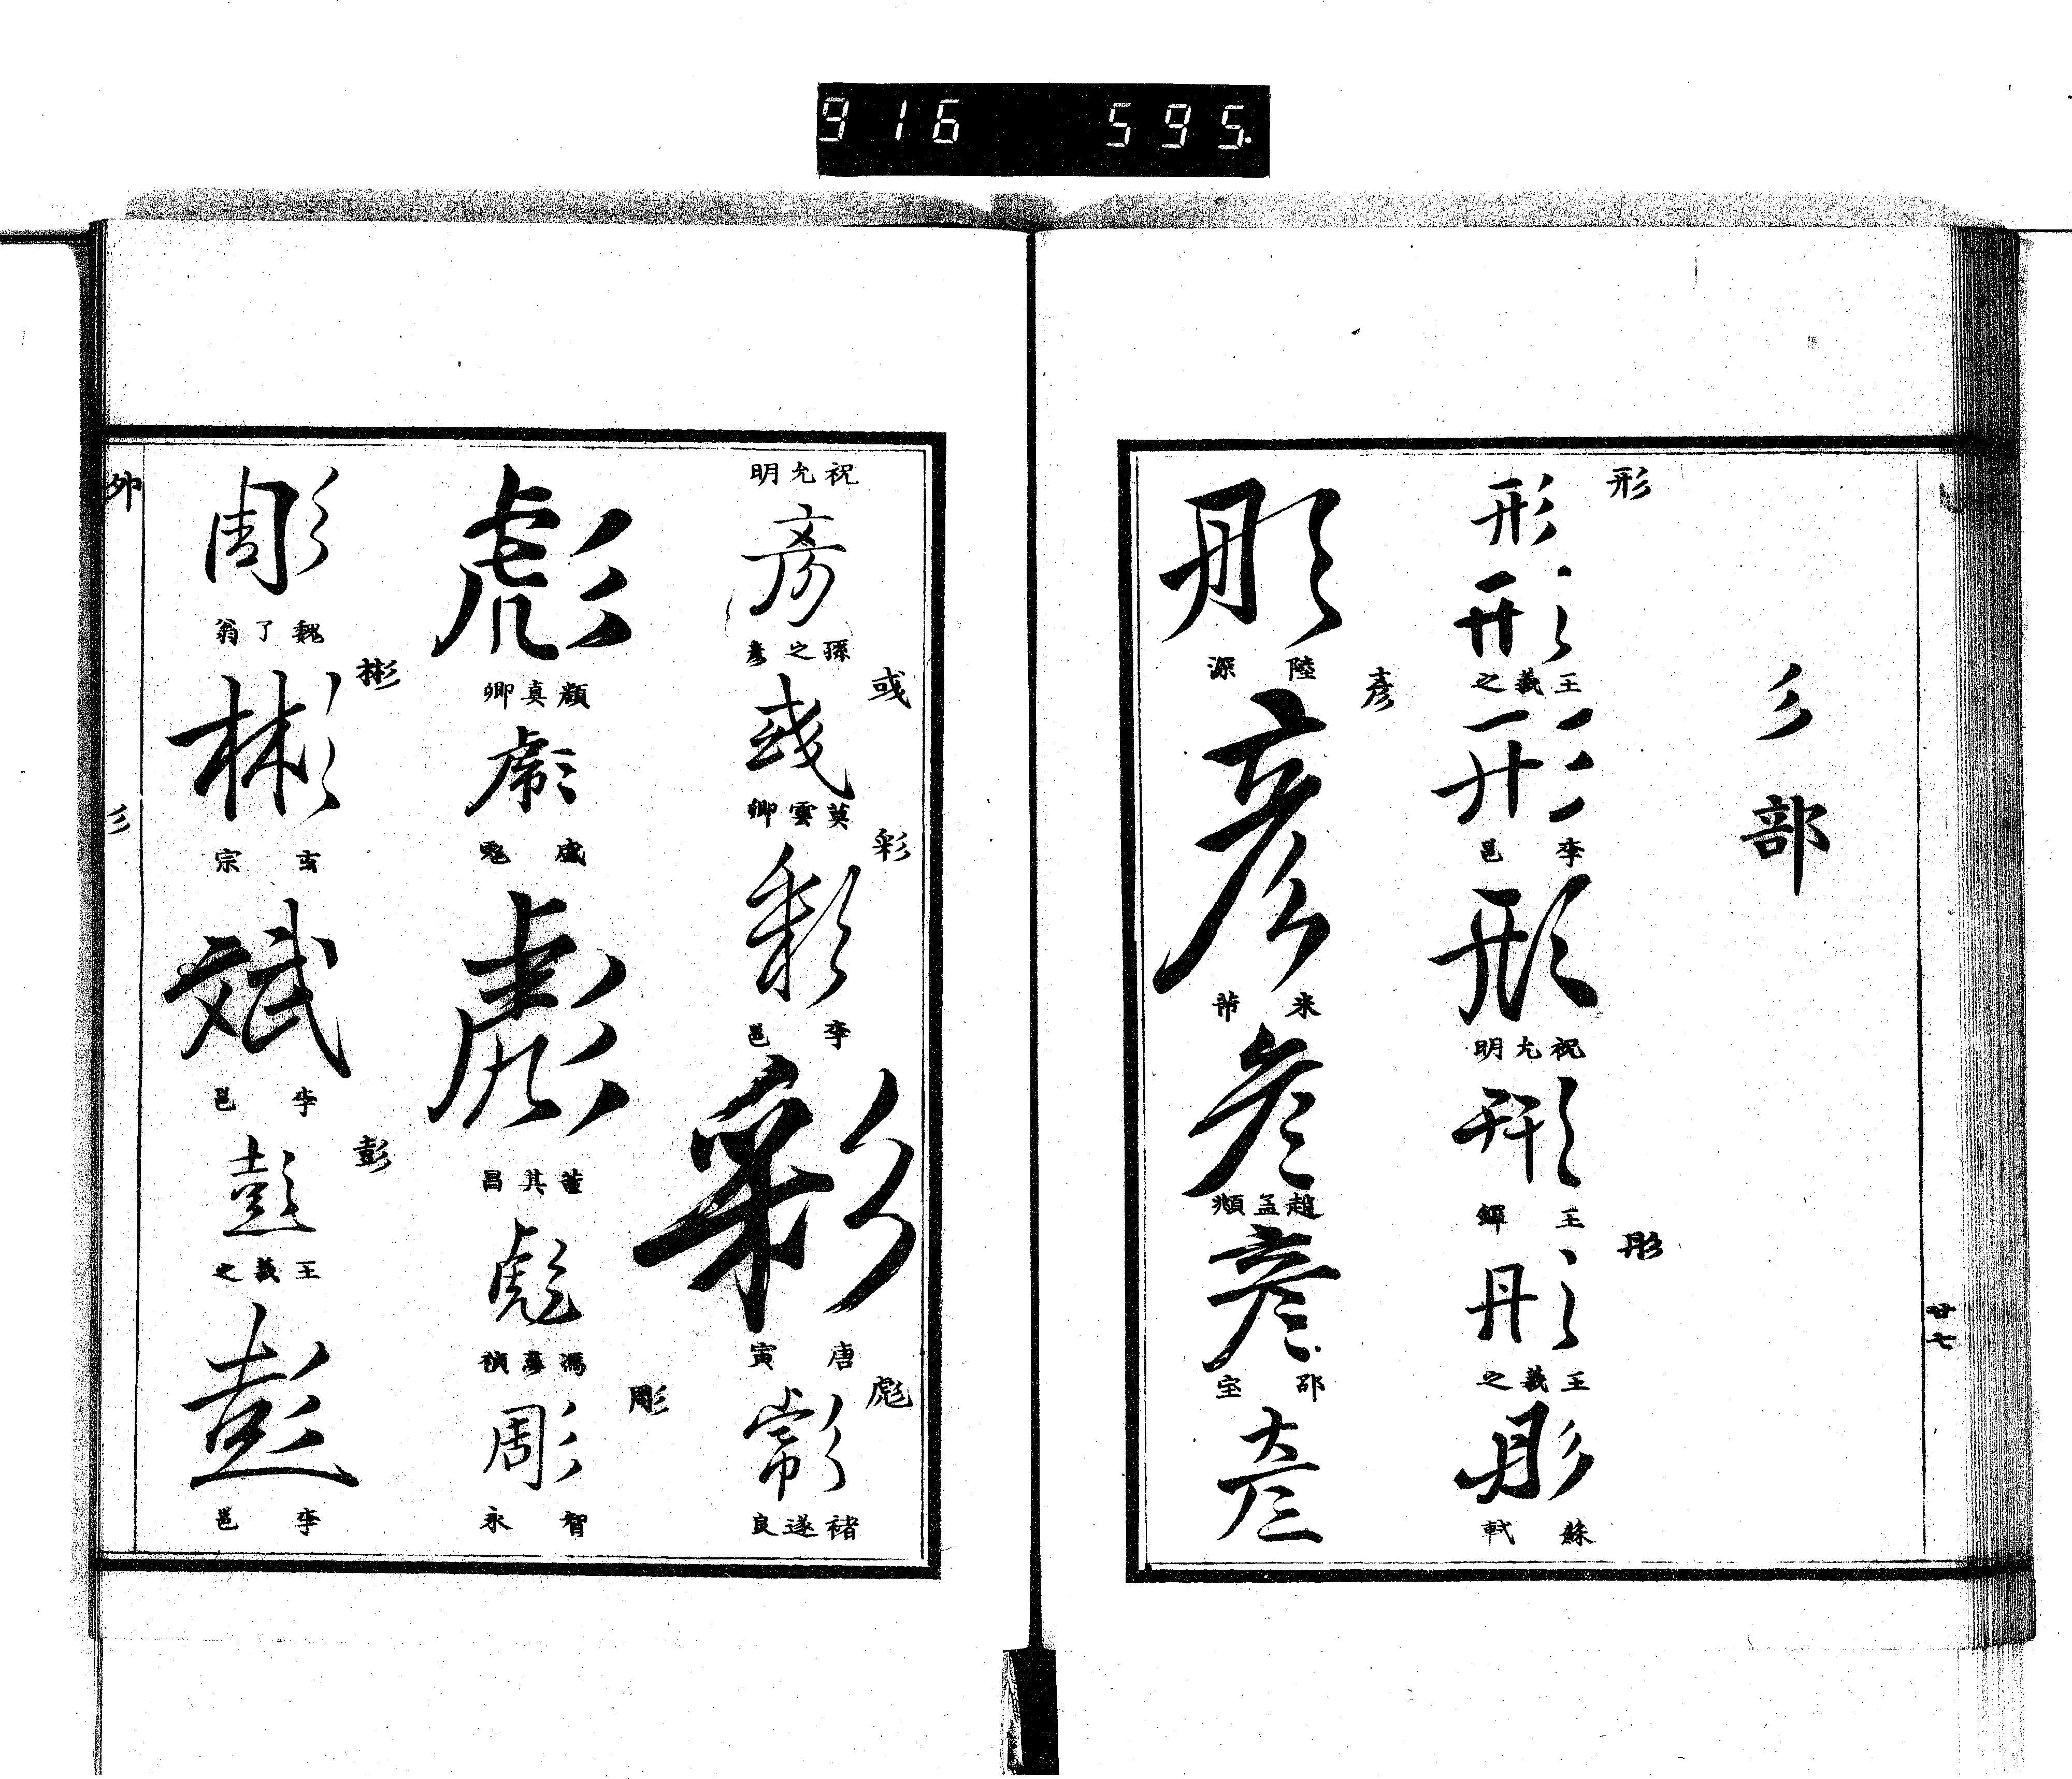 916 595.
彡部
廿七
形
形
形
王羲之
形
李邕
形
祝允明
形
王鐸
彤
彤
王羲之
彤
蘇軾
彤
陸深
彥
彥
米芾
彥
趙孟頫
彥
邵宝
彥
祝允明
彥
孫之彥
彧
彧
莫雲卿
彩
彩
李邕
彩
唐寅
彪
彪
褚遂良
彪
顏真卿
彪
彪
董其昌
彪
馮夢禎
彫
彫
智永
彫
魏了翁
彬
彬
玄宗
斌
李邕
彭
彭
王羲之
彭
李邕
卯
彡